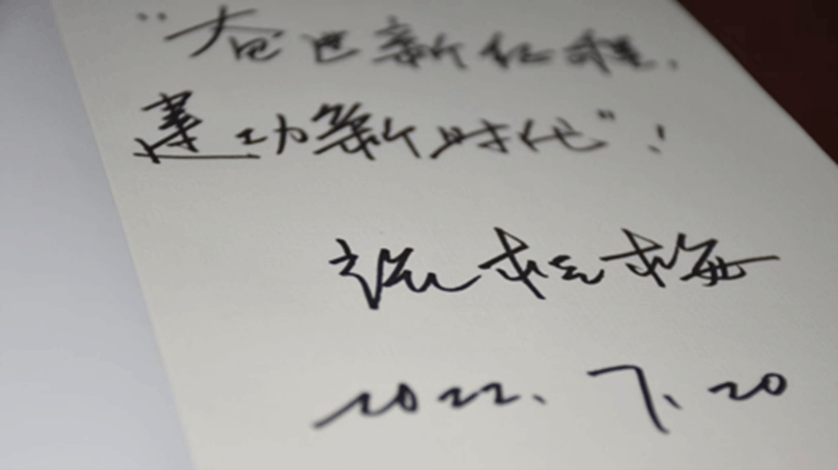 “奋进新征程,
建功新时代”!
张桂梅
2022.7.20